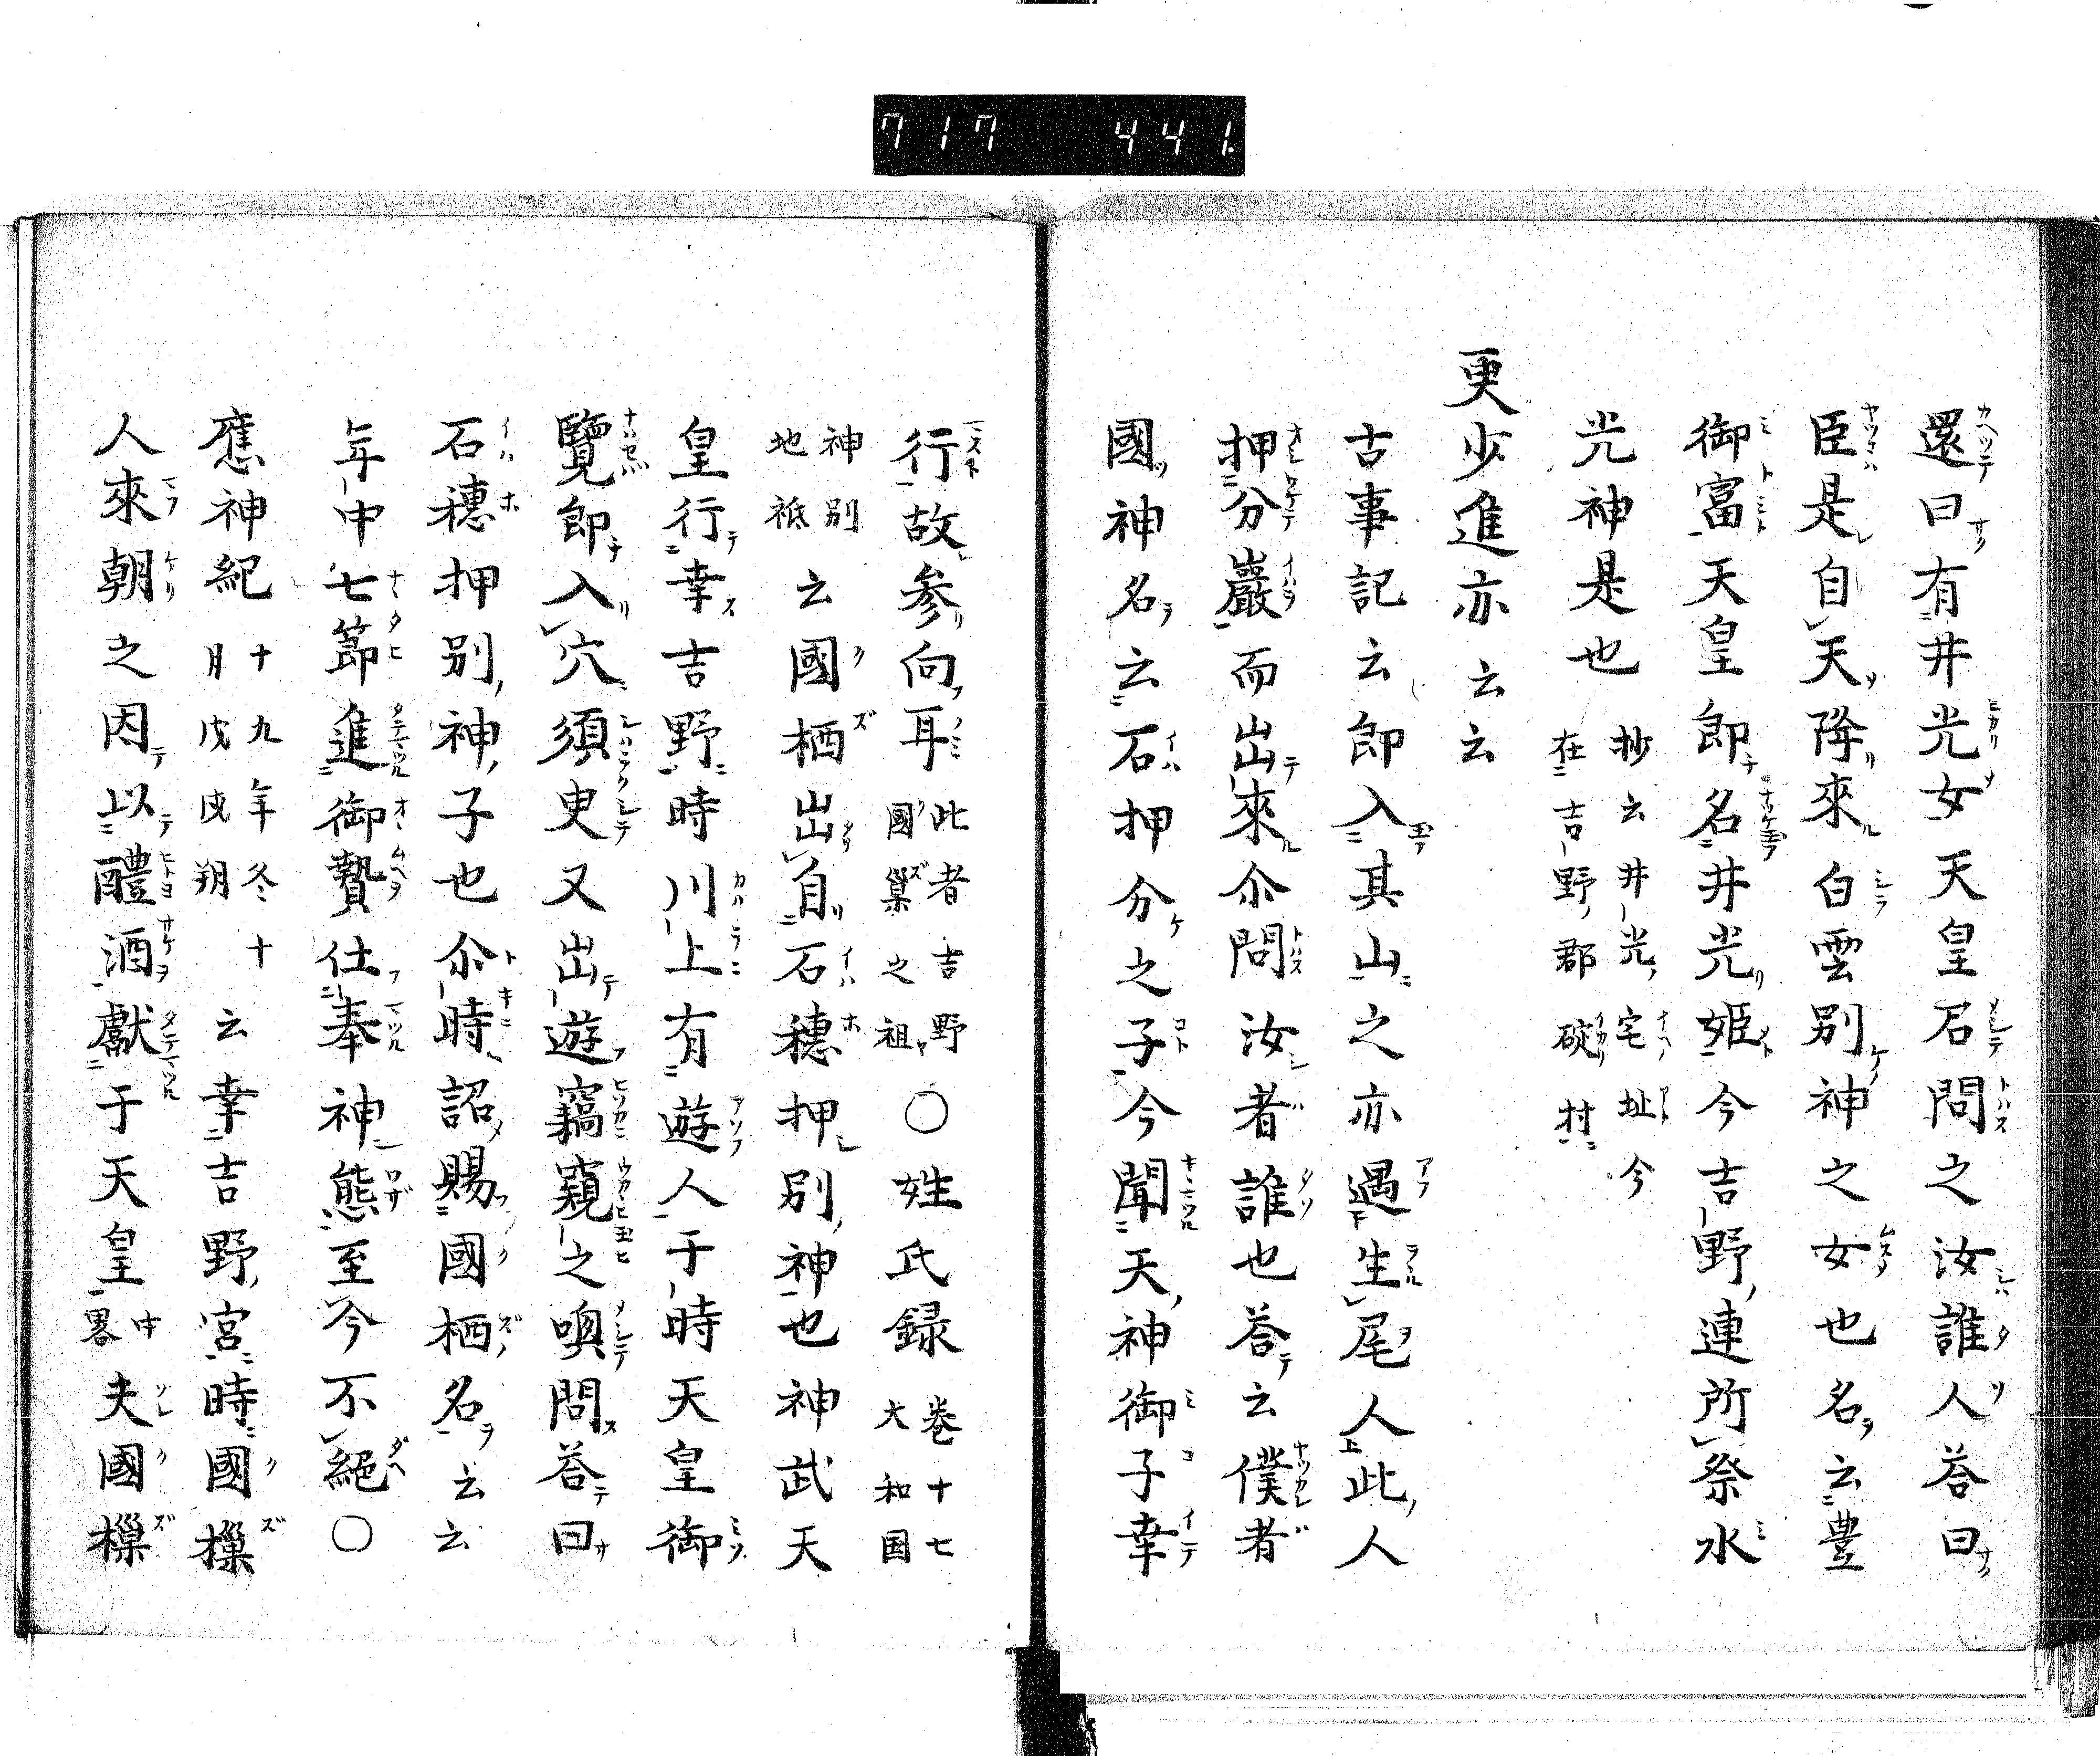 717 441.
還曰有井光女天皇召問之汝誰人荅曰
臣是自天降來白雲別神之女也名云豊
御富天皇即名井光姫今吉野連所祭水
光神是也 抄云井光宅址今
在吉野郡碇村
更少進亦云云
古事記云即入其山之亦遇生尾人此人
押分巖而出來尒問汝者誰也荅云僕者
國神名云石押分之子今聞天神御子幸
行故参向耳 此者吉野
國巢之祖 〇姓氏録 巻十七
大和国
神別
地祇 云國栖出自石穗押別神也神武天
皇行幸吉野時川上有遊人于時天皇御
覽即入穴須臾又出遊竊窺之喚問荅曰
石穗押別神子也尒時詔賜國栖名云云
年中七節進御贄仕奉神態至今不絕〇
應神紀 十九年冬十
月戊戌朔 云幸吉野宮時國樔
人來朝之因以醴酒獻于天皇 中
畧 夫國樔